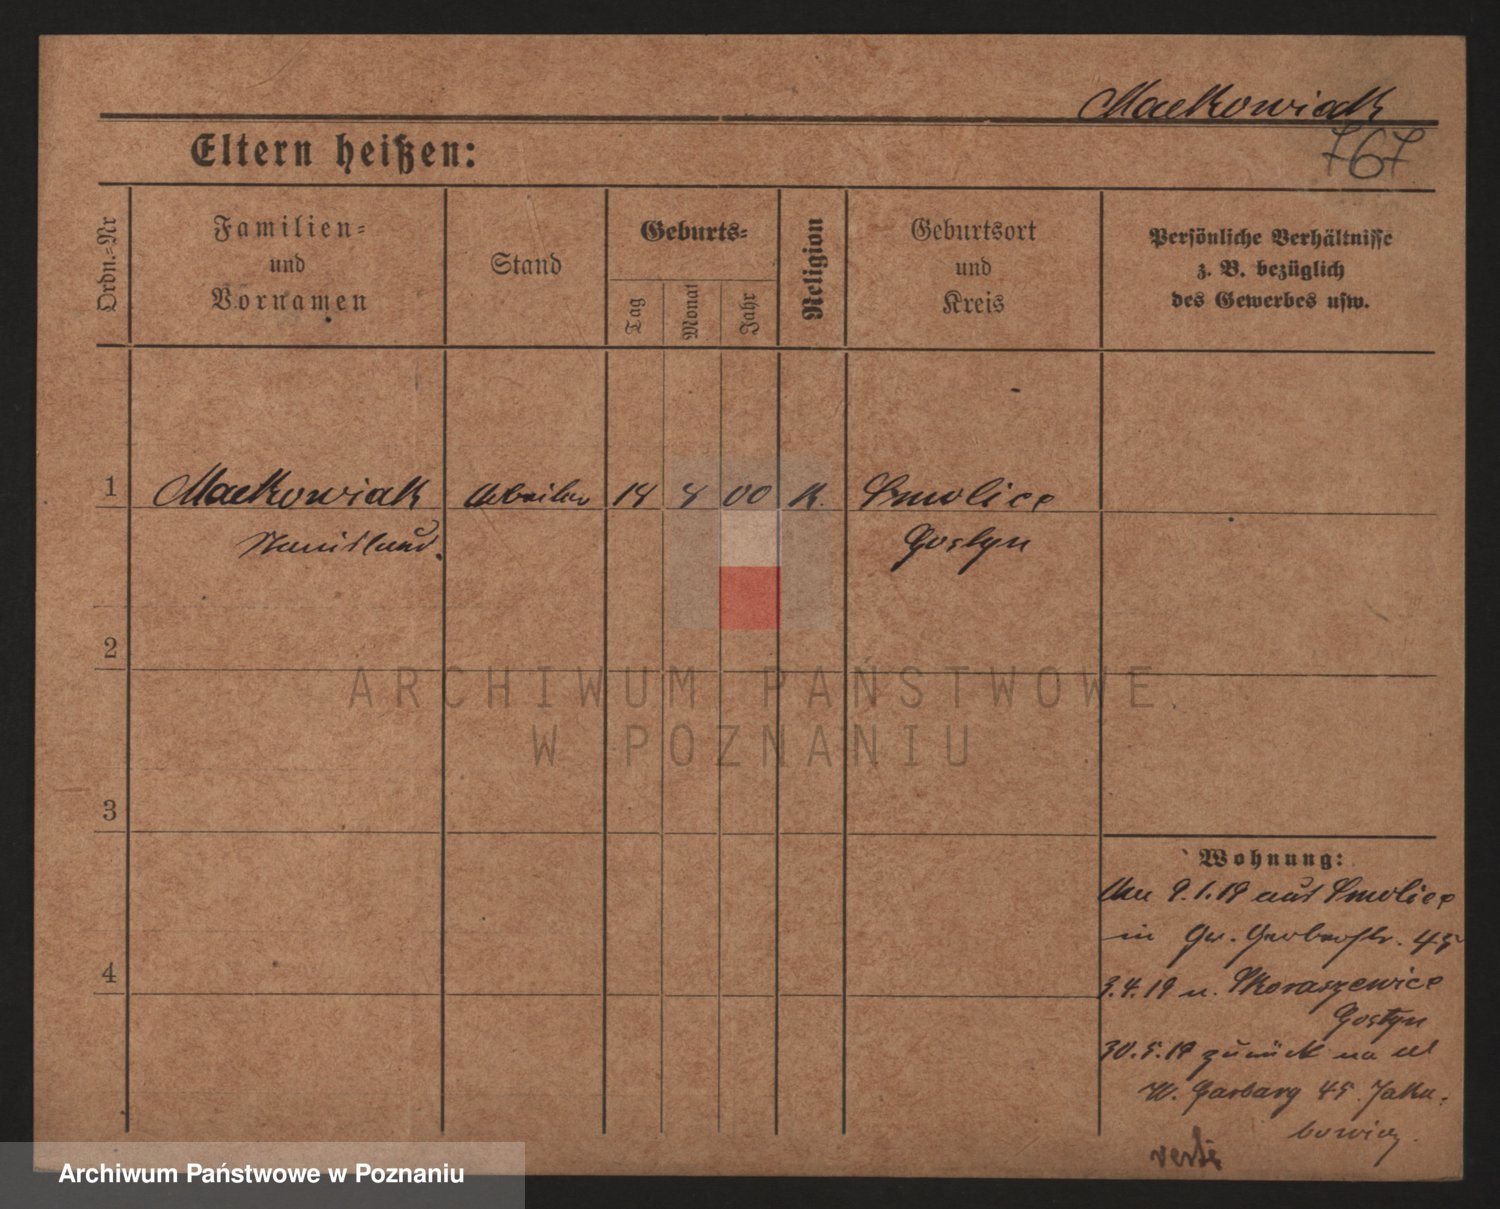 Maćkowiak
767
Eltern heißen:
Ordn.-Nr
Familien-
und
Vornamen
Stand
Geburts-
Tag
Monat
Jahr
Religion
Geburtsort
und
Kreis
Persönliche Verhältnisse
z. B. bezüglich
des Gewerbes usw.
1 Maćkowiak Arbeiter 14 8 00 K. Smolice
Gostyn
2
ARCHIWUM PAŃSTWOWE
W POZNANIU
3
Wohnung:
9.1.19 aus Smolice
in Gr. Gerberstr. 45
4
3.4.19 n. Skoraszewice
Gostyn
30.5.19 zurück na ul
W. Garbary 45 Jaku-
bowicz.
verte
Archiwum Państwowe w Poznaniu